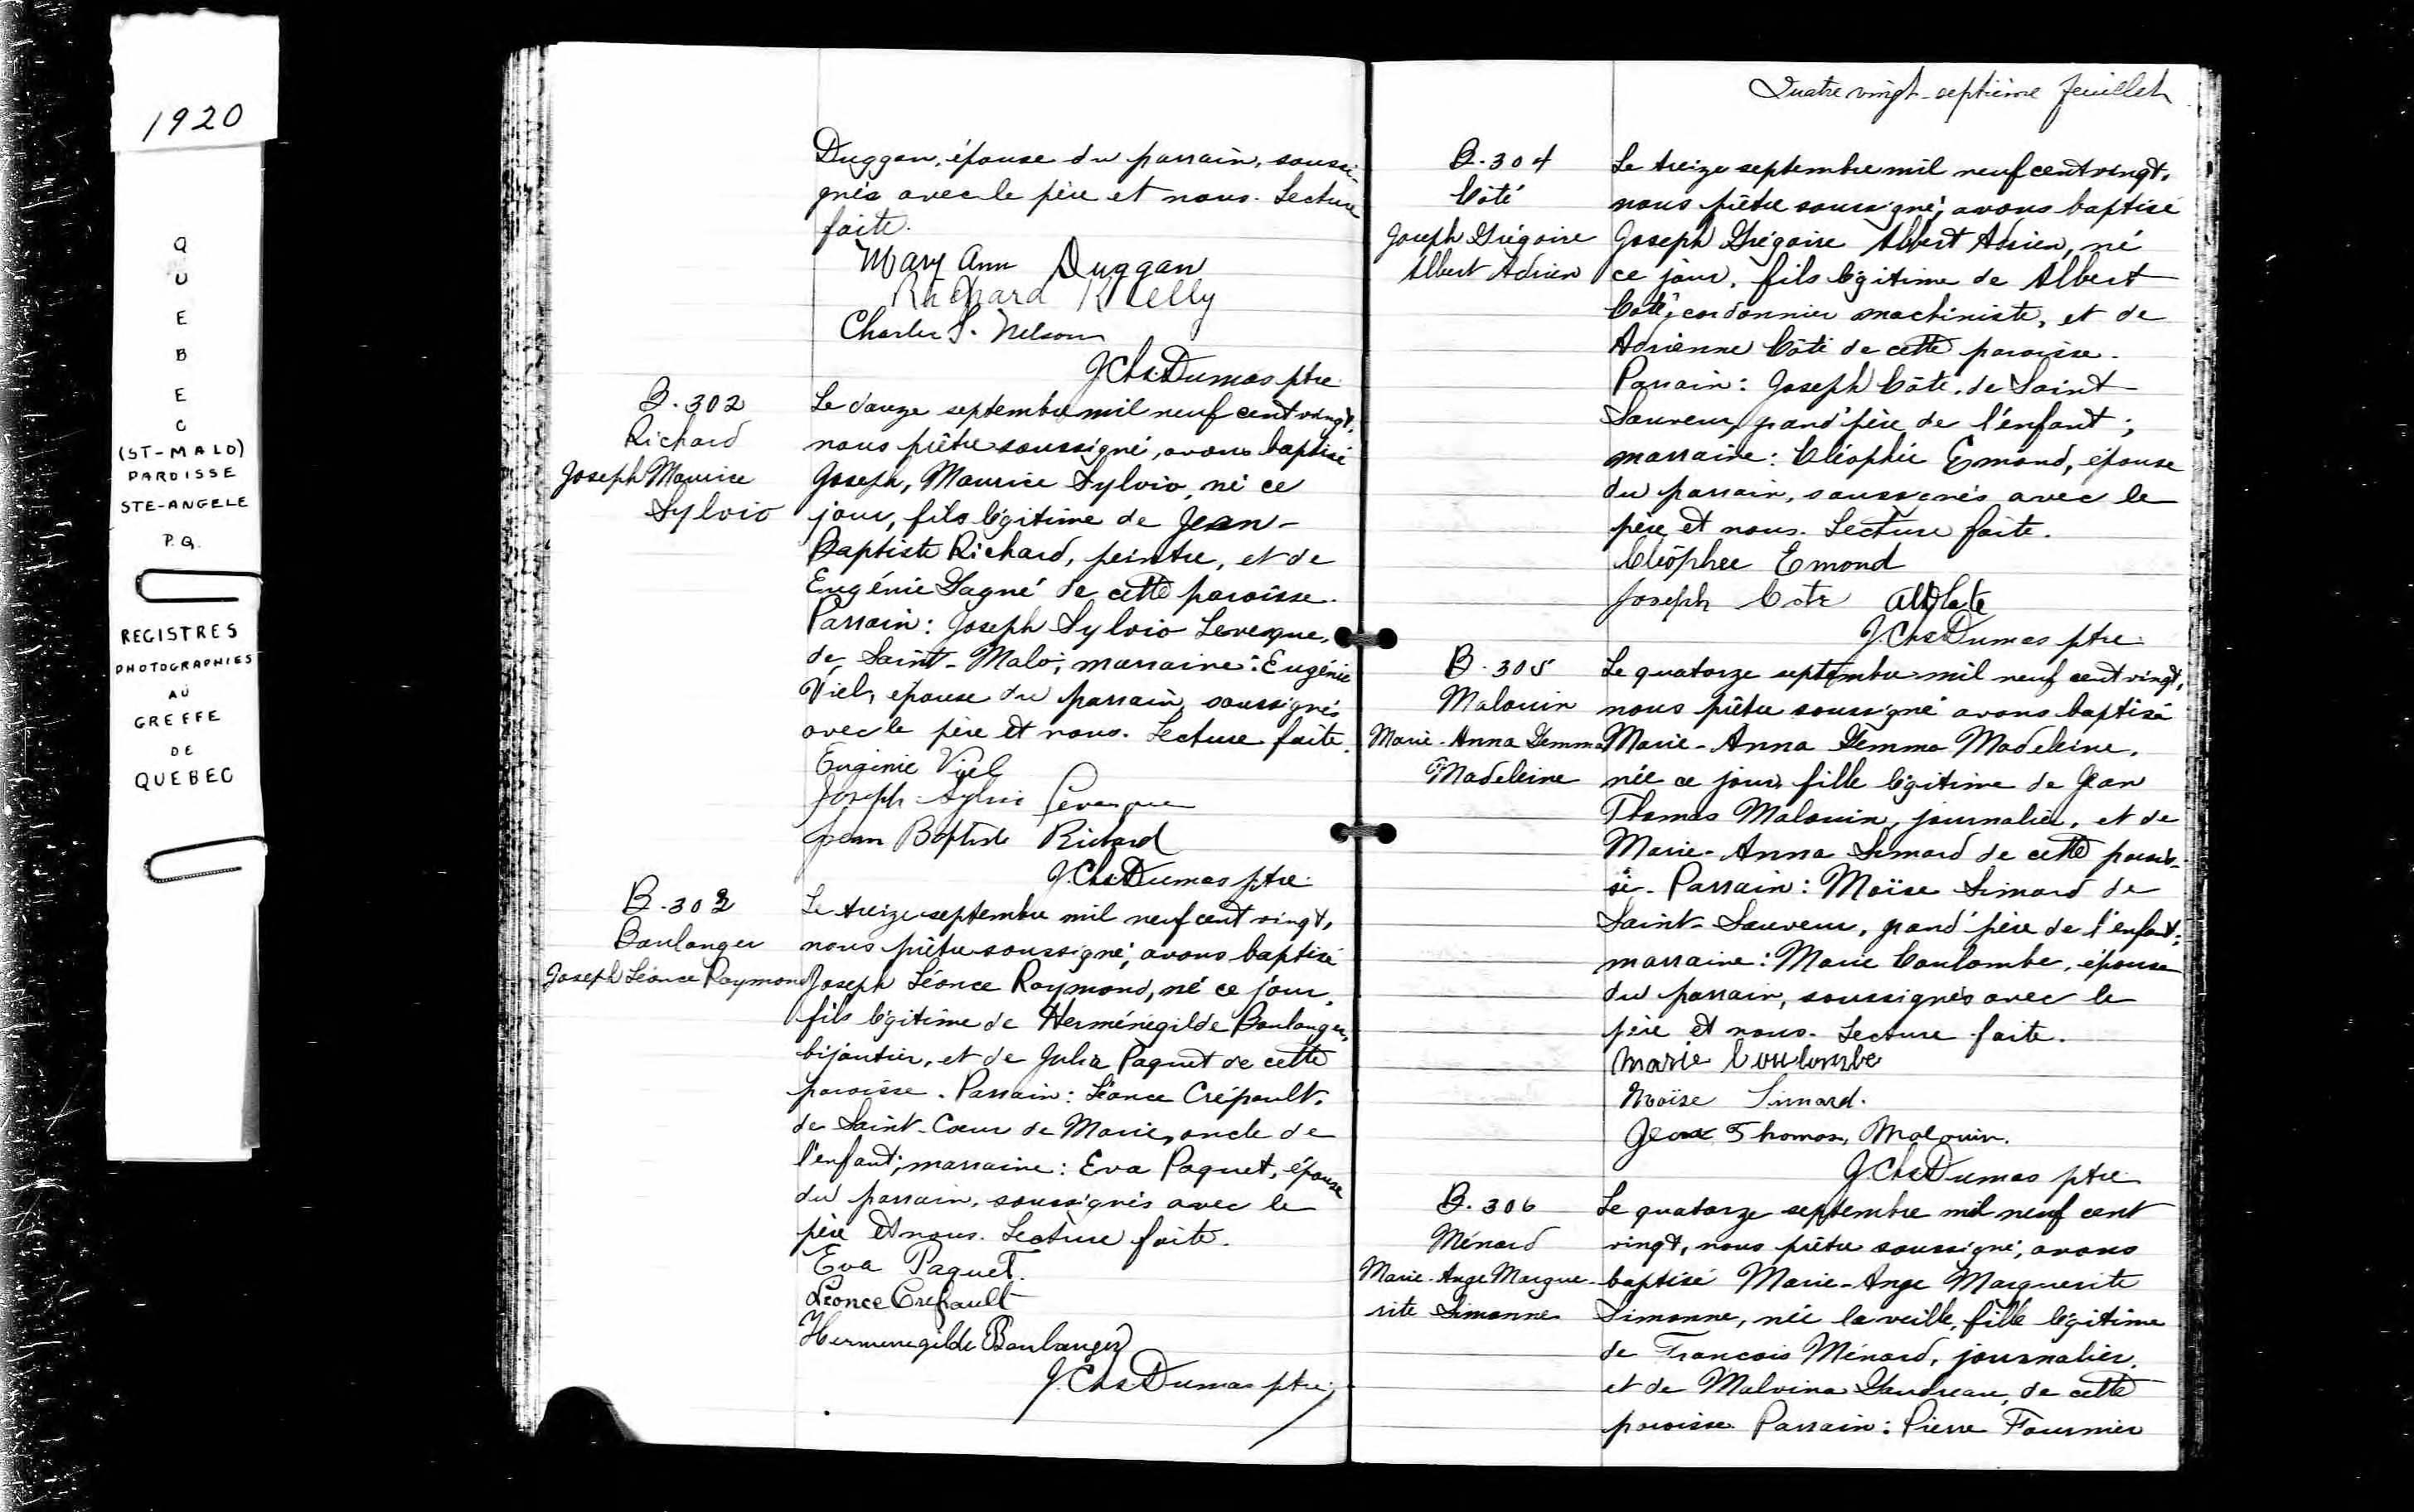 1920
QUEBEC
(ST-MALO)
PAROISSE
STE-ANGELE
P.Q.
REGISTRES
PHOTOGRAPHIES
AU
GREFFE
DE
QUEBEC
Duggan, épouse du parrain, soussi-
gnés avec le père et nous. Lecture
faite.
Mary Ann Duggan
Richard Kelly
Charles S. Nelson
J.Chs Dumas ptre
B. 302
Richard
Joseph Maurice
Sylvio
Le douze septembre mil neuf cent vingt,
nous prêtre soussigné, avons baptisé
Joseph, Maurice Sylvio, né ce
jour, fils légitime de Jean-
Baptiste Richard, peintre, et de
Eugénie Gagné de cette paroisse.
Parrain: Joseph Sylvio Levesque,
de Saint-Malo; marraine: Eugénie
Viel, épouse du parrain, soussignés
avec le père et nous. Lecture faite.
Eugénie Viel
Joseph-Sylvio Levesque
Jean Baptiste Richard
J.Chs Dumas ptre
B. 303
Boulanger
Joseph Léonce Raymond
Le treize septembre mil neuf cent vingt,
nous prêtre soussigné, avons baptisé
Joseph Léonce Raymond, né ce jour,
fils légitime de Herménégilde Boulanger,
bijoutier, et de Julia Paquet de cette
paroisse. Parrain: Léonce Crépault,
de Saint-Cœur de Marie, oncle de
l'enfant; marraine: Eva Paquet, épouse
du parrain, soussignés avec le
père et nous. Lecture faite.
Eva Paquet.
Léonce Crepault
Hermenegilde Boulanger
J.Chs Dumas ptre
Quatre vingt-septième feuillet
B. 304
Côté
Joseph Grégoire
Albert Adrien
Le treize septembre mil neuf cent vingt,
nous prêtre soussigné, avons baptisé
Joseph Grégoire Albert Adrien, né
ce jour, fils légitime de Albert
Côté, cordonnier machiniste, et de
Adrienne Côté de cette paroisse.
Parrain: Joseph Côté, de Saint-
Sauveur, grand'père de l'enfant;
marraine: Cléophée Emond, épouse
du parrain, soussignés avec le
père et nous. Lecture faite.
Cléophee Emond
Joseph Cote
J.Chs Dumas ptre
B. 305
Malouin
Marie-Anna Gemma
Madeleine
Le quatorze septembre mil neuf cent vingt,
nous prêtre soussigné avons baptisé
Marie-Anna Gemma Madeleine,
née ce jour, fille légitime de Jean
Thomas Malouin, journalier, et de
Marie-Anna Simard de cette parois-
se. Parrain: Moïse Simard de
Saint-Sauveur, grand'père de l'enfant;
marraine: Marie Coulombe, épouse
du parrain, soussignés avec le
père et nous. Lecture faite.
Marie Coulombe
Moïse Simard.
Jean Thomas, Malouin.
J.Chs Dumas ptre
B. 306
Ménard
Marie-Ange Margue-
rite Simonne
Le quatorze septembre mil neuf cent
vingt, nous prêtre soussigné, avons
baptisé Marie-Ange Marguerite
Simonne, née la veille, fille légitime
de Francois Ménard, journalier,
et de Malvina Gaudreau, de cette
paroisse. Parrain: Pierre Fournier